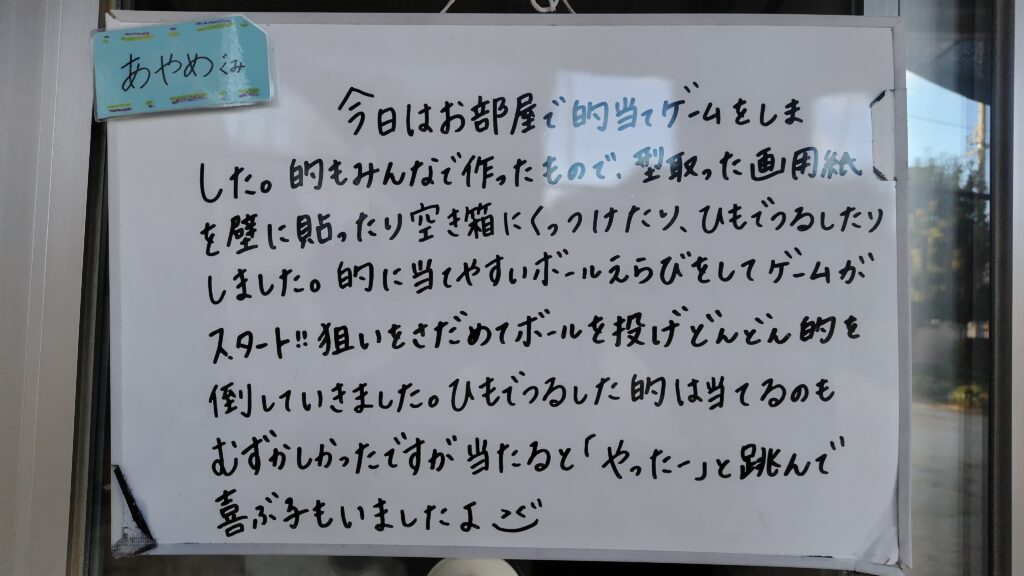 あやめぐみ
今日はお部屋で的当てゲームをしま
した。的もみんなで作ったもので、型取った画用紙
を壁に貼ったり空き箱にくっつけたり、ひもでつるしたり
しました。的に当てやすいボールえらびをしてゲームが
スタート!!狙いをさだめてボールを投げどんどん的を
倒していきました。ひもでつるした的は当てるのも
むずかしかったですが当たると「やったー」と跳んで
喜ぶ子もいましたよ